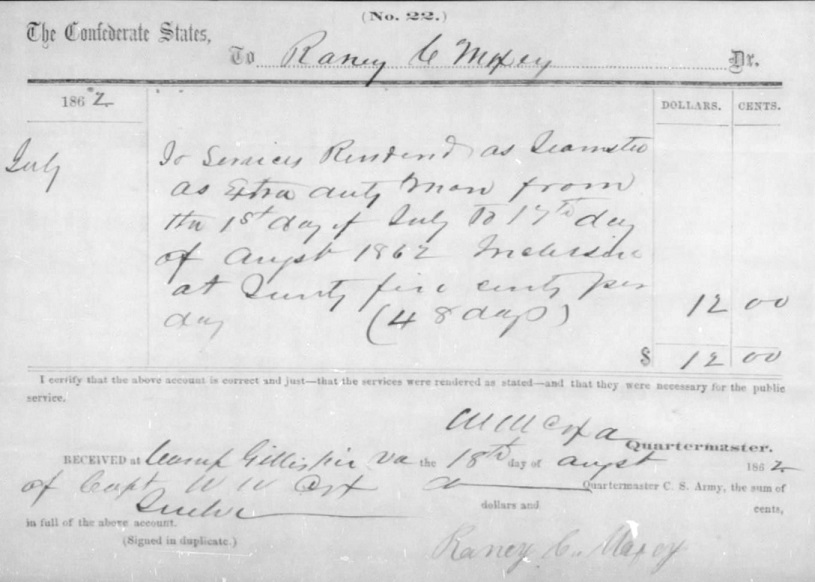 (No. 22.)
The Confederate States,
To Raney C Maxey Dr.
1862 DOLLARS. CENTS.
July To Services Rendered as Teamster
as Extra duty Man from
the 1st day of July to 17th day
of August 1862 Inclusive
at Twenty five cents per
day (48 days) 12 00
$ 12 00
I certify that the above account is correct and just—that the services were rendered as stated—and that they were necessary for the public
service.
Quartermaster.
RECEIVED at Camp Gillispie Va the 18th day of August 1862
of Capt W W Quartermaster C. S. Army, the sum of
Twelve dollars and cents,
in full of the above account.
(Signed in duplicate.)
Raney C. Maxey